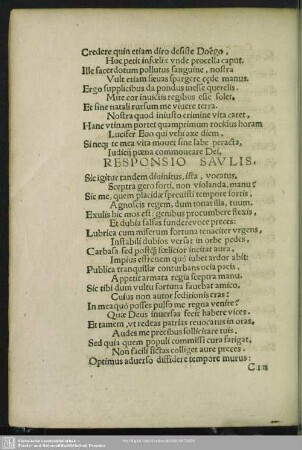 Credere quin etiam diro desiste Doëgo,
Hoc petit infœlix unde procella caput.
Ille sacerdotum pollutus sanguine, nostra
Vult etiam sævas spargere cęde manus.
Ergo supplicibus da pondus inesse querelis.
Mite cor invictis regibus esse solet,
Et sine natali rursum me vivere terra.
Nostra quod iniusto crimine vita caret,
Hanc ut in portet quamprimum rocidus horam
Lucifer Eoo qui vehi axe diem,
Si neqɜ te mea vita movet sine labe peracta,
Iudicij pœna commoveare Dei,
RESPONSIO SAVLIS,
Sic igitur tandem divinitus, ista, vocatus,
Sceptra gero sorti, non violanda, manu?
Sic me, quem placidæ sprevisti tempore sortis,
Agnoscis regem, dum tonat illa, tuum,
Exulis hic mos est: genibus procumbere flexis,
Et dubia falsas fundere voce preces:
Lubrica cum miserum fortuna tenaciter urgens,
Instabili dubios versat in orbe pedes,
Carbasa sed postq̃ fœlicior incitat aura,
Impius effrenem quò iubet ardor abit:
Publica tranquillæ conturbans ocia pacis,
Appetit armata regia sceptra manu.
Sic tibi dum vultu fortuna favebat amico.
Cuius non autor seditionis eras?
In mea quò posses pulso me regna venire?
Quæ Deus inversas fecit habere vices.
Et tamen, ut redeas patrias revocatus in oras,
Audes me precibus sollicitare tuis.
Sed quia quem populi commissi cura fatigat,
Non facili fictas colliget aure preces.
Optimus adverso diffidere tempore murus:
C iii